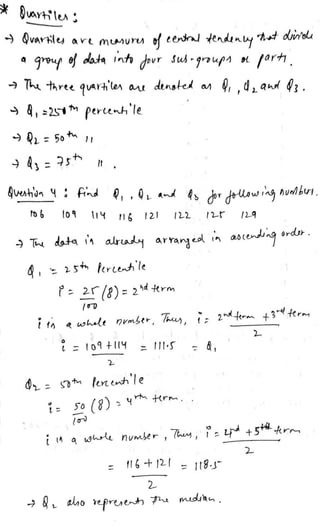 * Quartiles :
→ Quartiles are measures of central tendency that divide
a group of data into four sub-groups or parts.
→ The three quartiles are denoted as Q₁, Q₂ and Q₃.
→ Q₁ = 25th percentile
→ Q₂ = 50th "
→ Q₃ = 75th " .
Question 4 : Find Q₁, Q₂ and Q₃ for following numbers.
106 109 114 116 121 122 125 129
→ The data is already arranged in ascending order.
Q₁ = 25th Percentile
i = 25/100 (8) = 2nd term
i is a whole number, Thus, i = (2nd term + 3rd term)/2
i = (109 + 114)/2 = 111.5 = Q₁
Q₂ = 50th Percentile
i = 50/100 (8) = 4th term.
i is a whole number, Thus, i = (4th + 5th term)/2
= (116 + 121)/2 = 118.5
→ Q₂ also represents the median.